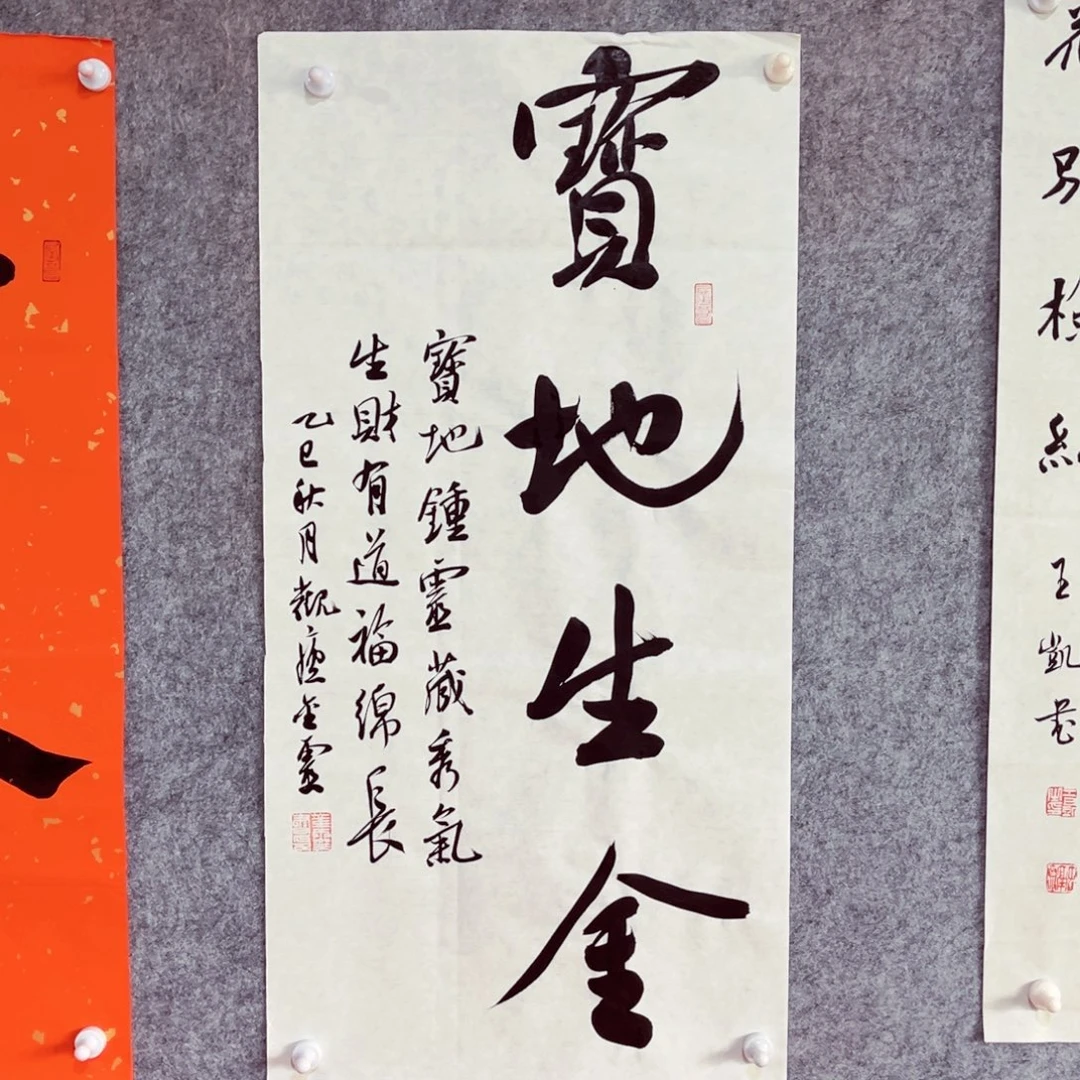 寶地生金
寶地鍾靈藏秀氣
生財有道福綿長
乙巳秋月觀瀘金靈
別檢
王凱